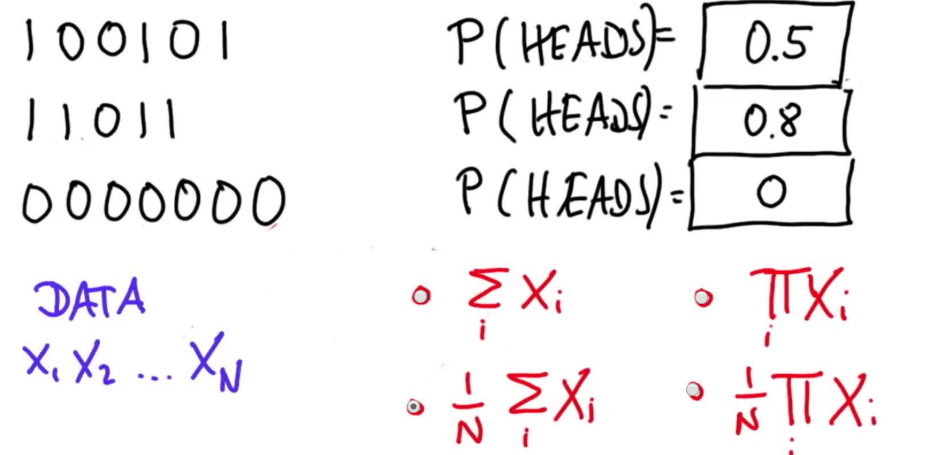 100101 P(HEADS)= 0.5
11011 P(HEADS)= 0.8
0000000 P(HEADS)= 0
DATA
X₁ X₂ ... X_N
∑_i X_i
∏_i X_i
1/N ∑_i X_i
1/N ∏_i X_i